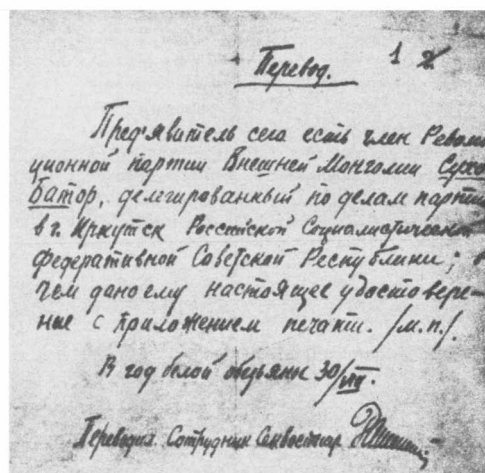 1 2
Перевод.
Пред'явитель сего есть член Револю
ционной партии Внешней Монголии Сухэ
Батор, делегированный по делам партии
в г. Иркутск Российской Социалистической
Федеративной Советской Республики; в
чем дано ему настоящее удостовере-
ние с приложением печати. /м.п./.
В год белой обезьяны 30/VII.
Переводил Сотрудник Секвостмар